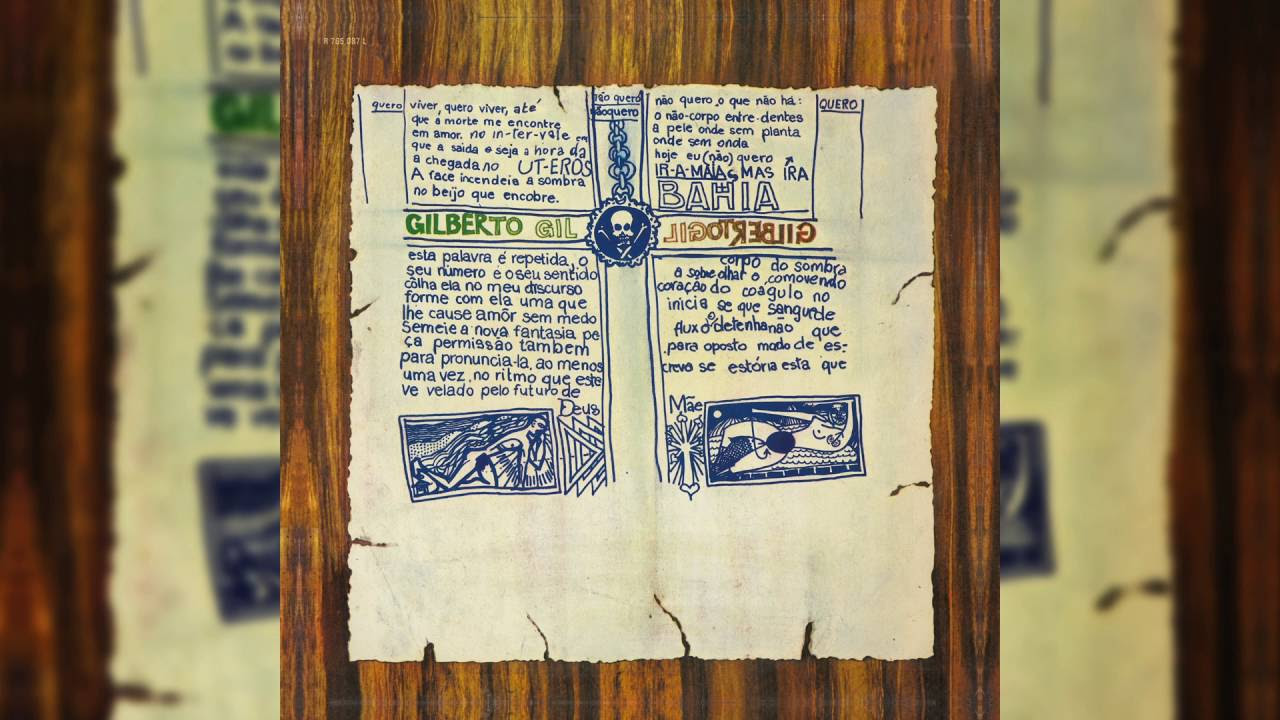 R 765.087 L
quero
viver, quero viver, até
que a morte me encontre
em amor. no in-ter-vale em
que a saida e seja a hora da
a chegada no UT-EROS
A face incendeia a sombra
no beijo que encobre.
não quero
nãoquero
não quero o que não há:
o não-corpo entre-dentes
a pele onde sem planta
onde sem onda
hoje eu (não) quero
IR-A-MAIAS MAS IRA
BAHIA
QUERO
GILBERTO GIL
GILBERTO GIL
esta palavra é repetida, o
seu número é o seu sentido
côlha ela no meu discurso
forme com ela uma que
lhe cause amôr sem medo
Semeie a nova fantasia pe
ça permissão tambem
para pronuncia-la, ao menos
uma vez, no ritmo que este
ve velado pelo futuro de
Deus
corpo do sombra
a sobre olhar o comovendo
coração do coagulo no
inicia se que sangue de
fluxo detenha não que
para oposto modo de es-
creva se estória esta que
Mãe